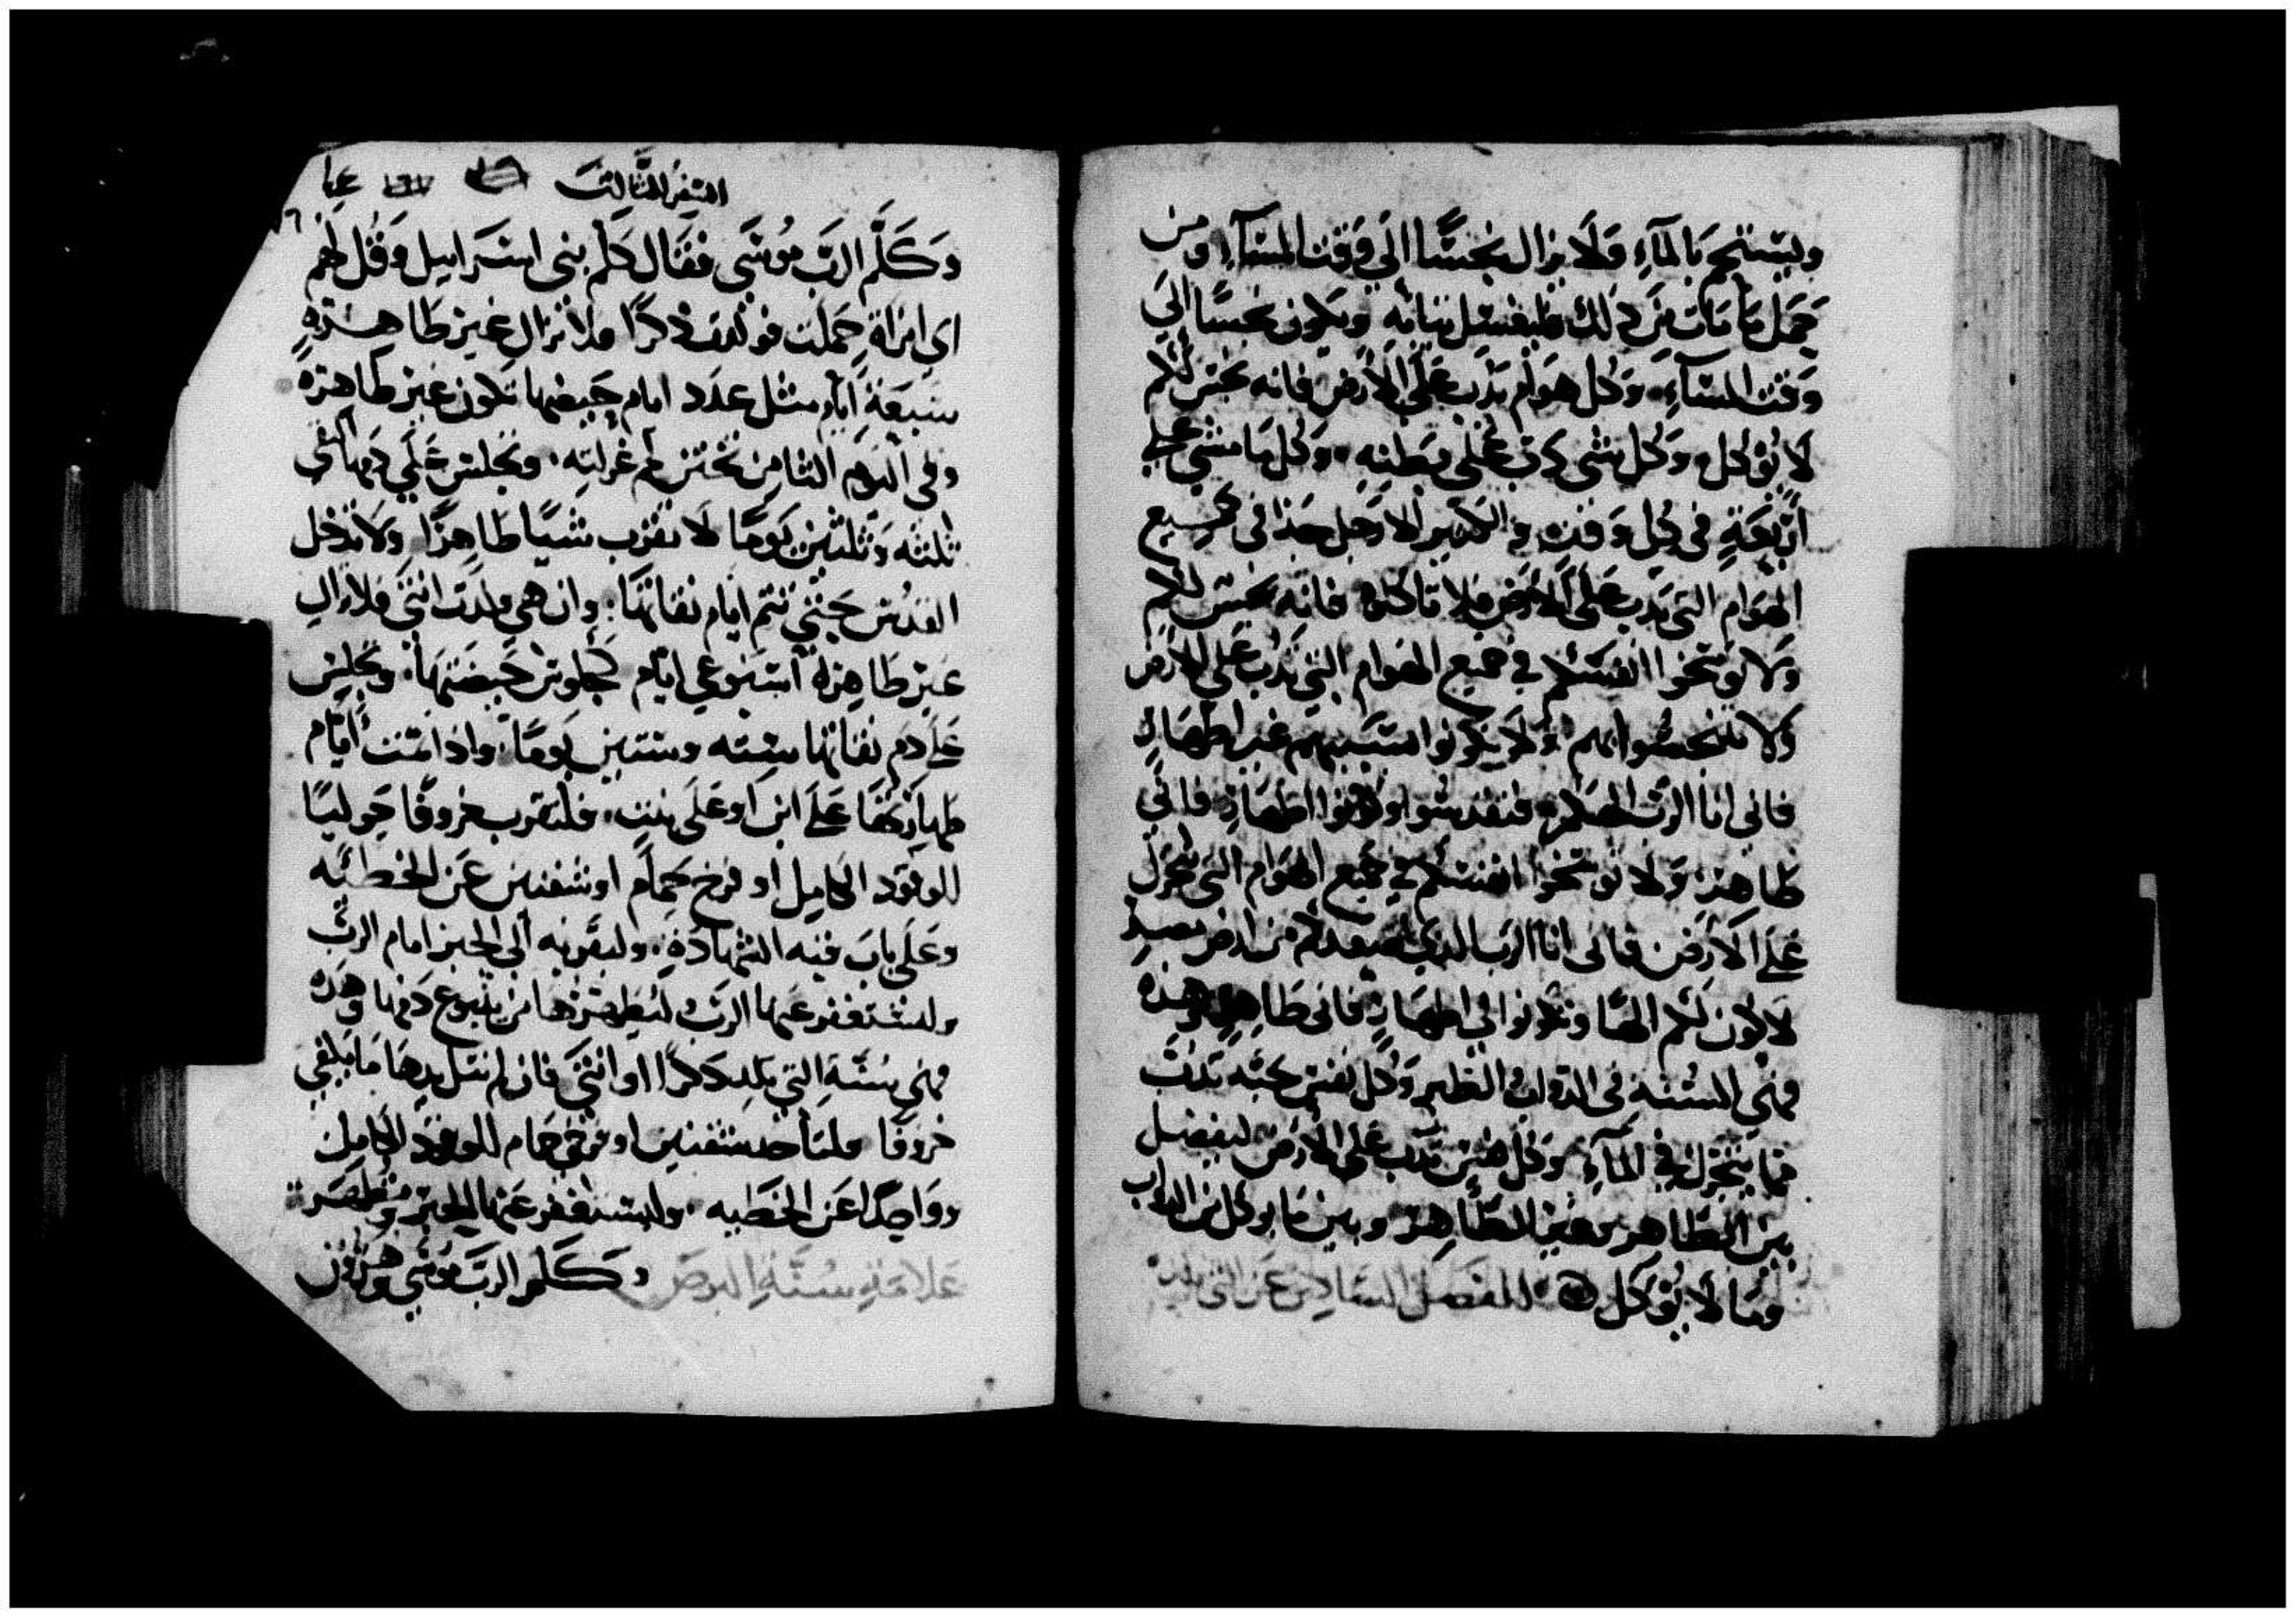 ويستحم بالمآءِ وَلَا يزال نجسًا الي وَقت المسآءِ ومن
حَمل مَا مَات مِن ذلك فليغسل ثيابه ويكون نجسًا الي
وَقت المسآءِ وَكل هوَام تدب عَلَى الارض فانه نجس لكم
لا يُؤكل وَكل شي يدب عَلى بَطنهِ وَكل مَا مشي علي
أربَعَةٍ في كل وَقت والكثير الارجل جدا في جميع
الهوَام التي تدب عَلى الارض فلا تاكلوه فانه نجس لكم
ولا توسّخوا انفسَكم في جميع الهوام التي تدب على الارض
ولا تتنجسُوا بهم وَلَا تكونوا بسَببهم غير اطهَار
فاني انا الرب الهكم فتقدسُوا وكونوا اطهَار فاني
طاهر وَلا توسّخوا انفسَكم في جميع الهوام التي تتحرك
عَلَى الارض فاني انا الرب الذي اصعدكم من ارض مصر
لاكون لكم الهًا وتكونوا لي اطهَارٍ فاني طاهر وهذه
فهي السُنة في الدواب والطير وَكل نفس حيّه تدبّ
مما يتحرّك في المآءِ وَكل نفس تدب على الارض ليفصل
بين الطَاهر وغير الطَاهر وبين مَا يوكل من الدواب
ومَا لا يُؤكل الفصل السَادس عَن التي تلد
السفر الثالث
وَكَلَّم الربّ موُسَى فقَال كلم بني اسرَاييل وَقُل لهم
اي امرَاة حَملت فولدت ذكرًا فلا تزال غير طَاهرَةٍ
سَبعَة أيَام مثل عدَد ايام حَيضها تكون غير طاهرَه
وفي اليَوم الثامن تختن لحم غرلته وتجلس عَلَي دَمها النقي
ثلثه وَثلثين يَومًا لا تقرب شيًا طَاهرًا وَلَا تدخل
القدُس حَتّي تتم ايام نفاسهَا وان هي ولدت انثي فلا تزال
غير طَاهرة اسبُوعي ايَام كجلوس حَيضتهَا وتجلس
عَلَى دم نفاسها سته وستين يَومًا واذا تمت أيَام
طهارَتهَا عَلَى ابن او عَلَى بنت فلتقرب خروفًا حَوليًا
للوقود الكامِل او فرخ حَمام او شفنين عَن الخطيَّه
وعَلَى بابَ قبه الشهادَةِ وليقربه الى الحبر امام الربّ
وليستغفر عَنها الربّ ليطهرَها من ينبوع دَمها وهَذه
فهي سُنّة التي تلد ذكرًا او انثي فان لم تنل يدهَا مَا يكفي
خروفًا فلتأخذ شفنين او فرخي حمام للوقود الكامِل
وَوَاحِدًا عَن الخطَيه وليستغفر عَنها الحبر وَتُطهَر
عَلَامَة سُنَّة البرَص وَكَلَّم الربّ موُسَي وهرُون